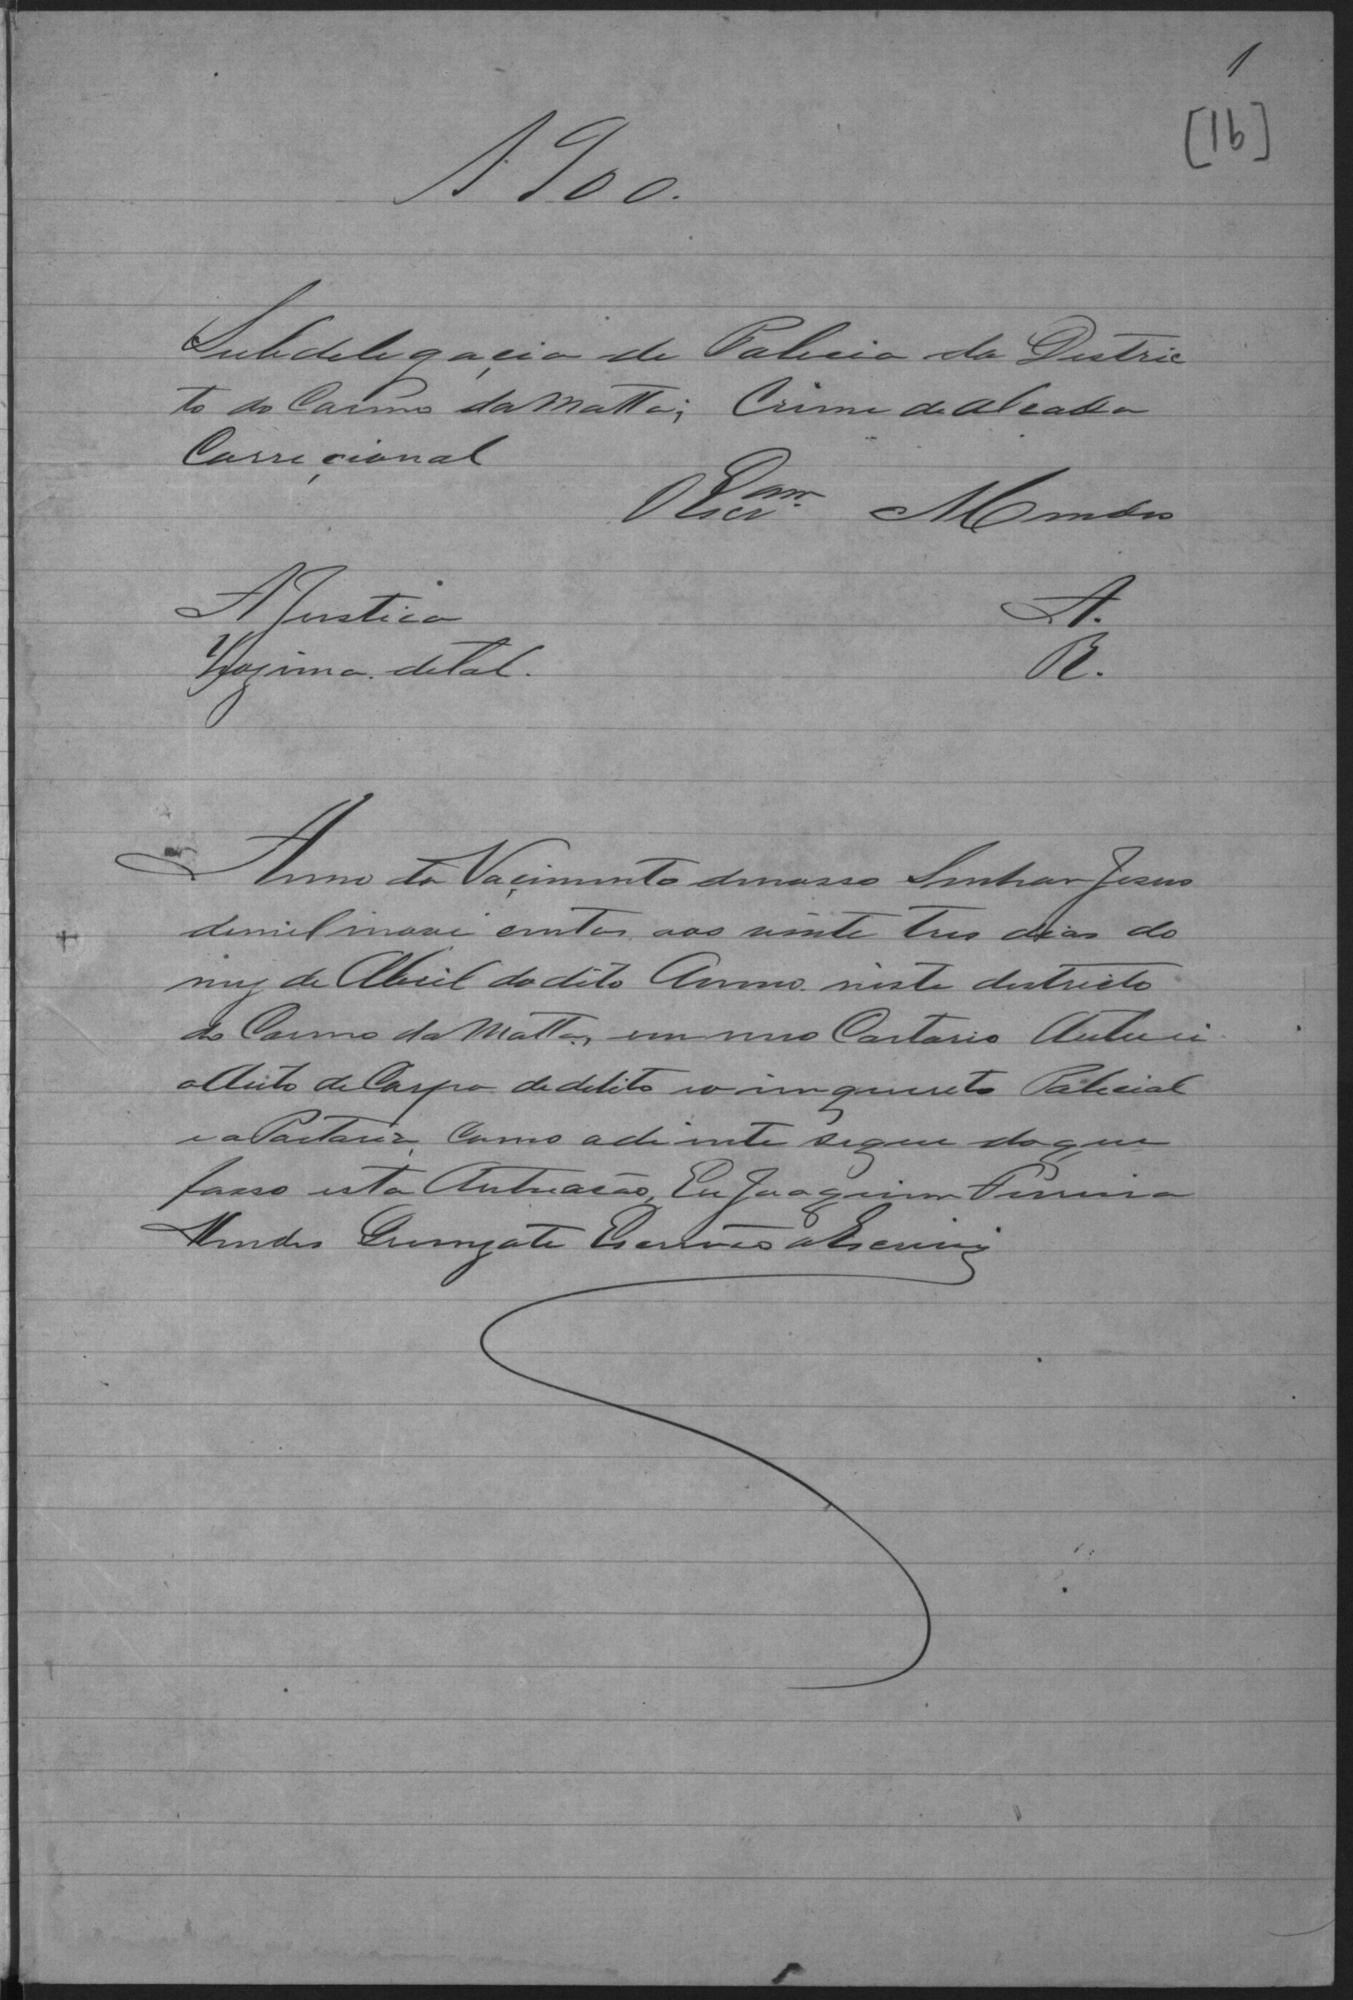 1
[1b]
1900.
Subdelegacia de Policia do Distric
to do Carmo da Matta; Crime de alçada
Correcional
O Escr.am Mendes
A Justiça A.
de tal. R.
Anno do Nacimento de nosso Senhor Jesus
de mil nove centos aos vinte tres dias do
mez de Abril do dito Anno neste districto
do Carmo da Matta, em meo Cartorio Autuei
o Auto de Corpo de delito e o inquerito Policial
e a Portaria, como adiente segue do que
fasso esta Autuacão, Eu Joaquim Ferreira
Mendes Escrivão o Escrivi